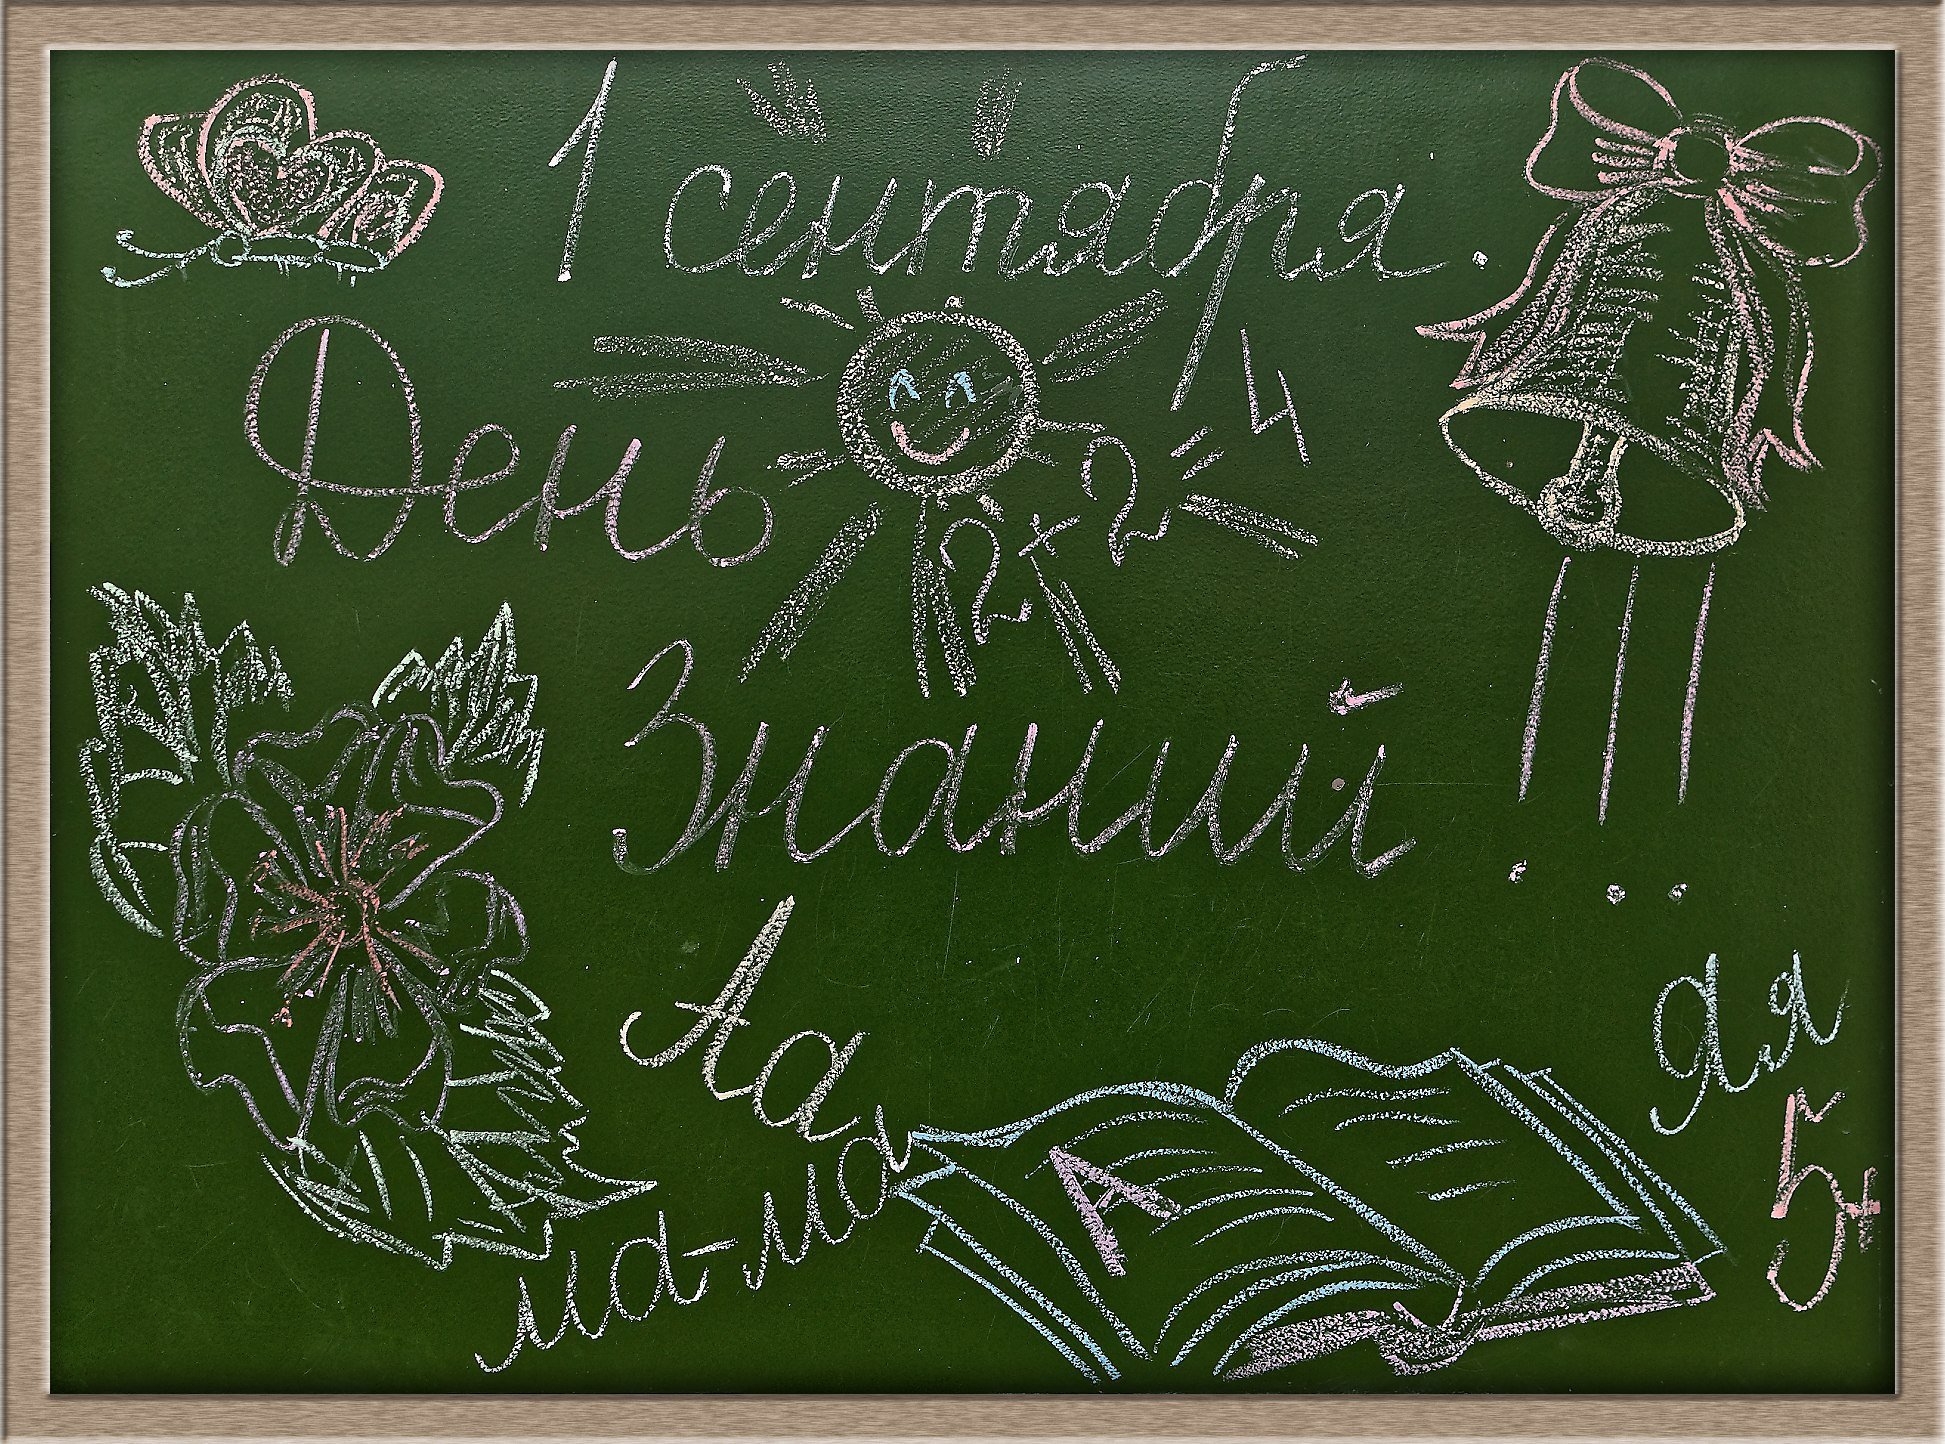 1 сентября.
День
2+2=4
Знаний!!!
Аа
Яя
ма-ма
А
5+